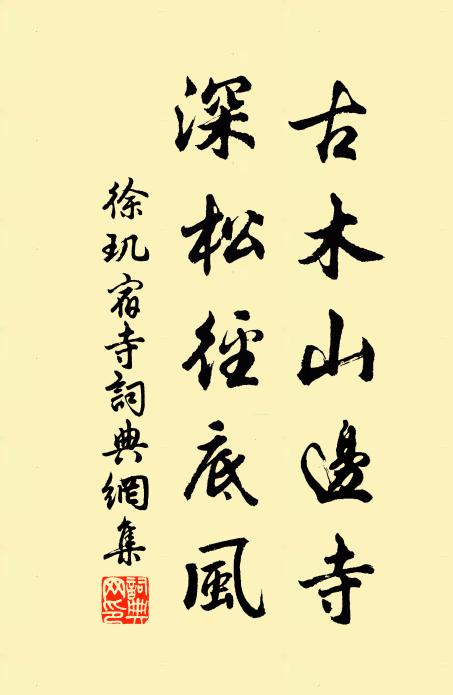 古木山邊寺
深松徑底風
徐璣宿寺詞典網集
詞典網印